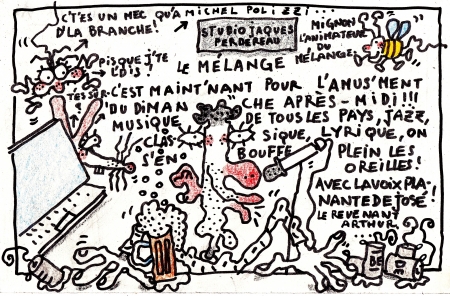 C'T'ES UN MEC QU'A MICHEL POLIZZI...
D'LA BRANCHE!
STUDIO JAQUES
PERDEREAU
MIGNON
L'ANIMATEUR
DU
MÉLANGE
PISQUE J'TE
L'DIS!
LE MÉLANGE
TESSER
C'EST MAINT'NANT POUR L'AMUS'MENT
DU DIMANCHE APRÈS-MIDI!!!
MUSIQUE DE TOUS LES PAYS, JAZZ,
CLASSIQUE, LYRIQUE, ON
S'EN BOUFFE PLEIN LES
OREILLES!
AVEC LA VOIX PLA-
NANTE DE JOSÉ
LE REVENANT
ARTHUR